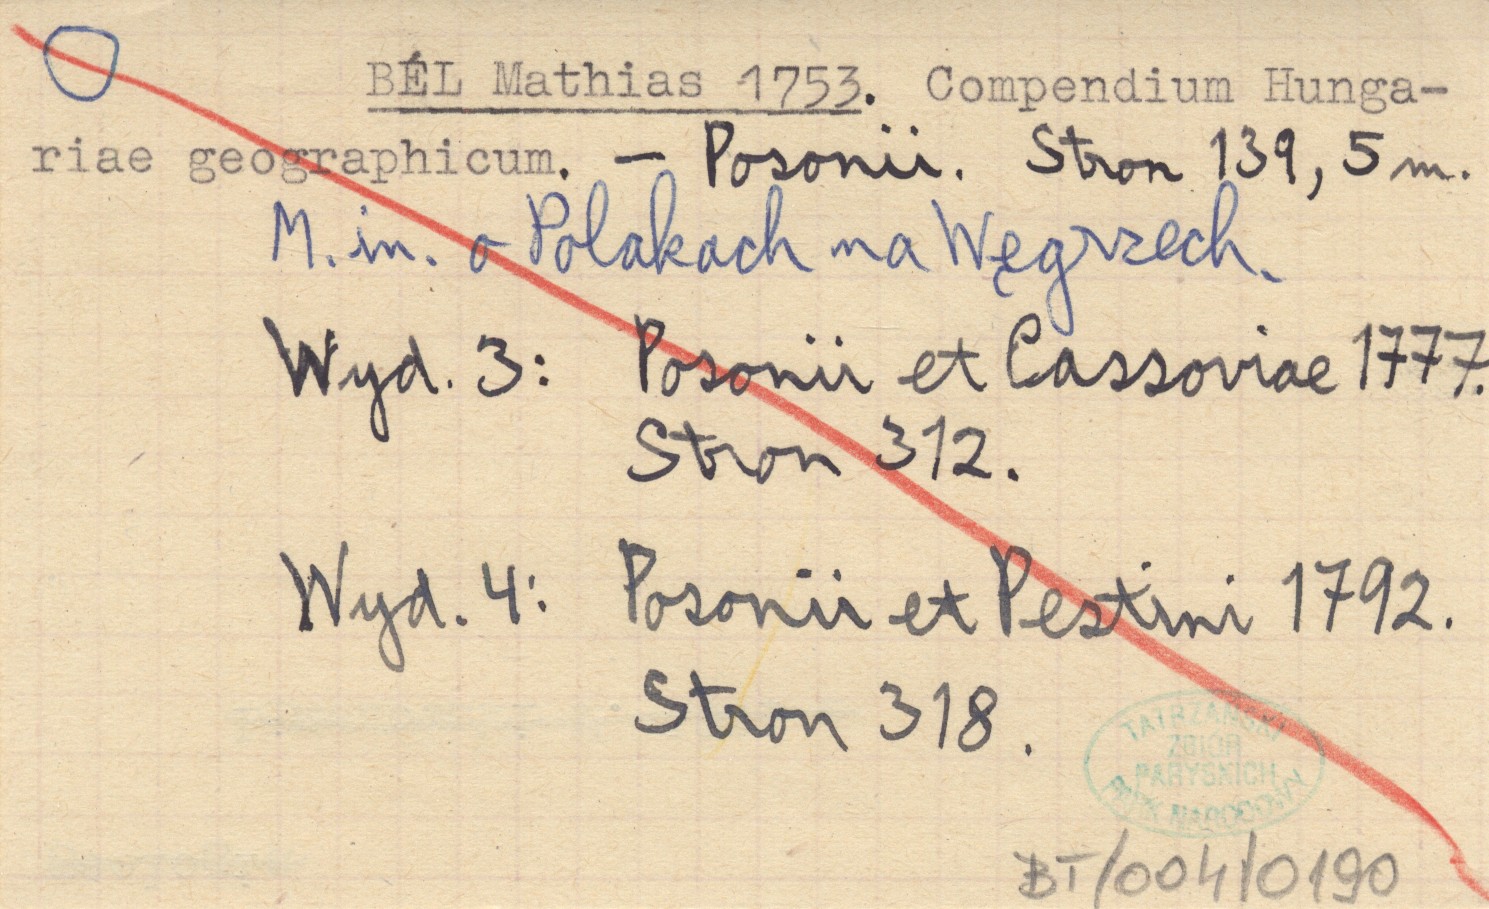 BÉL Mathias 1753. Compendium Hunga-
riae geographicum. — Posonii. Stron 139, 5 m.
M. in. o Polakach na Węgrzech.
Wyd. 3: Posonii et Cassoviae 1777.
Stron 312.
Wyd. 4: Posonii et Pestini 1792.
Stron 318.
TATRZAŃSKI
ZBIÓR
PARYSKICH
PARK NARODOWY
BT/004/0190